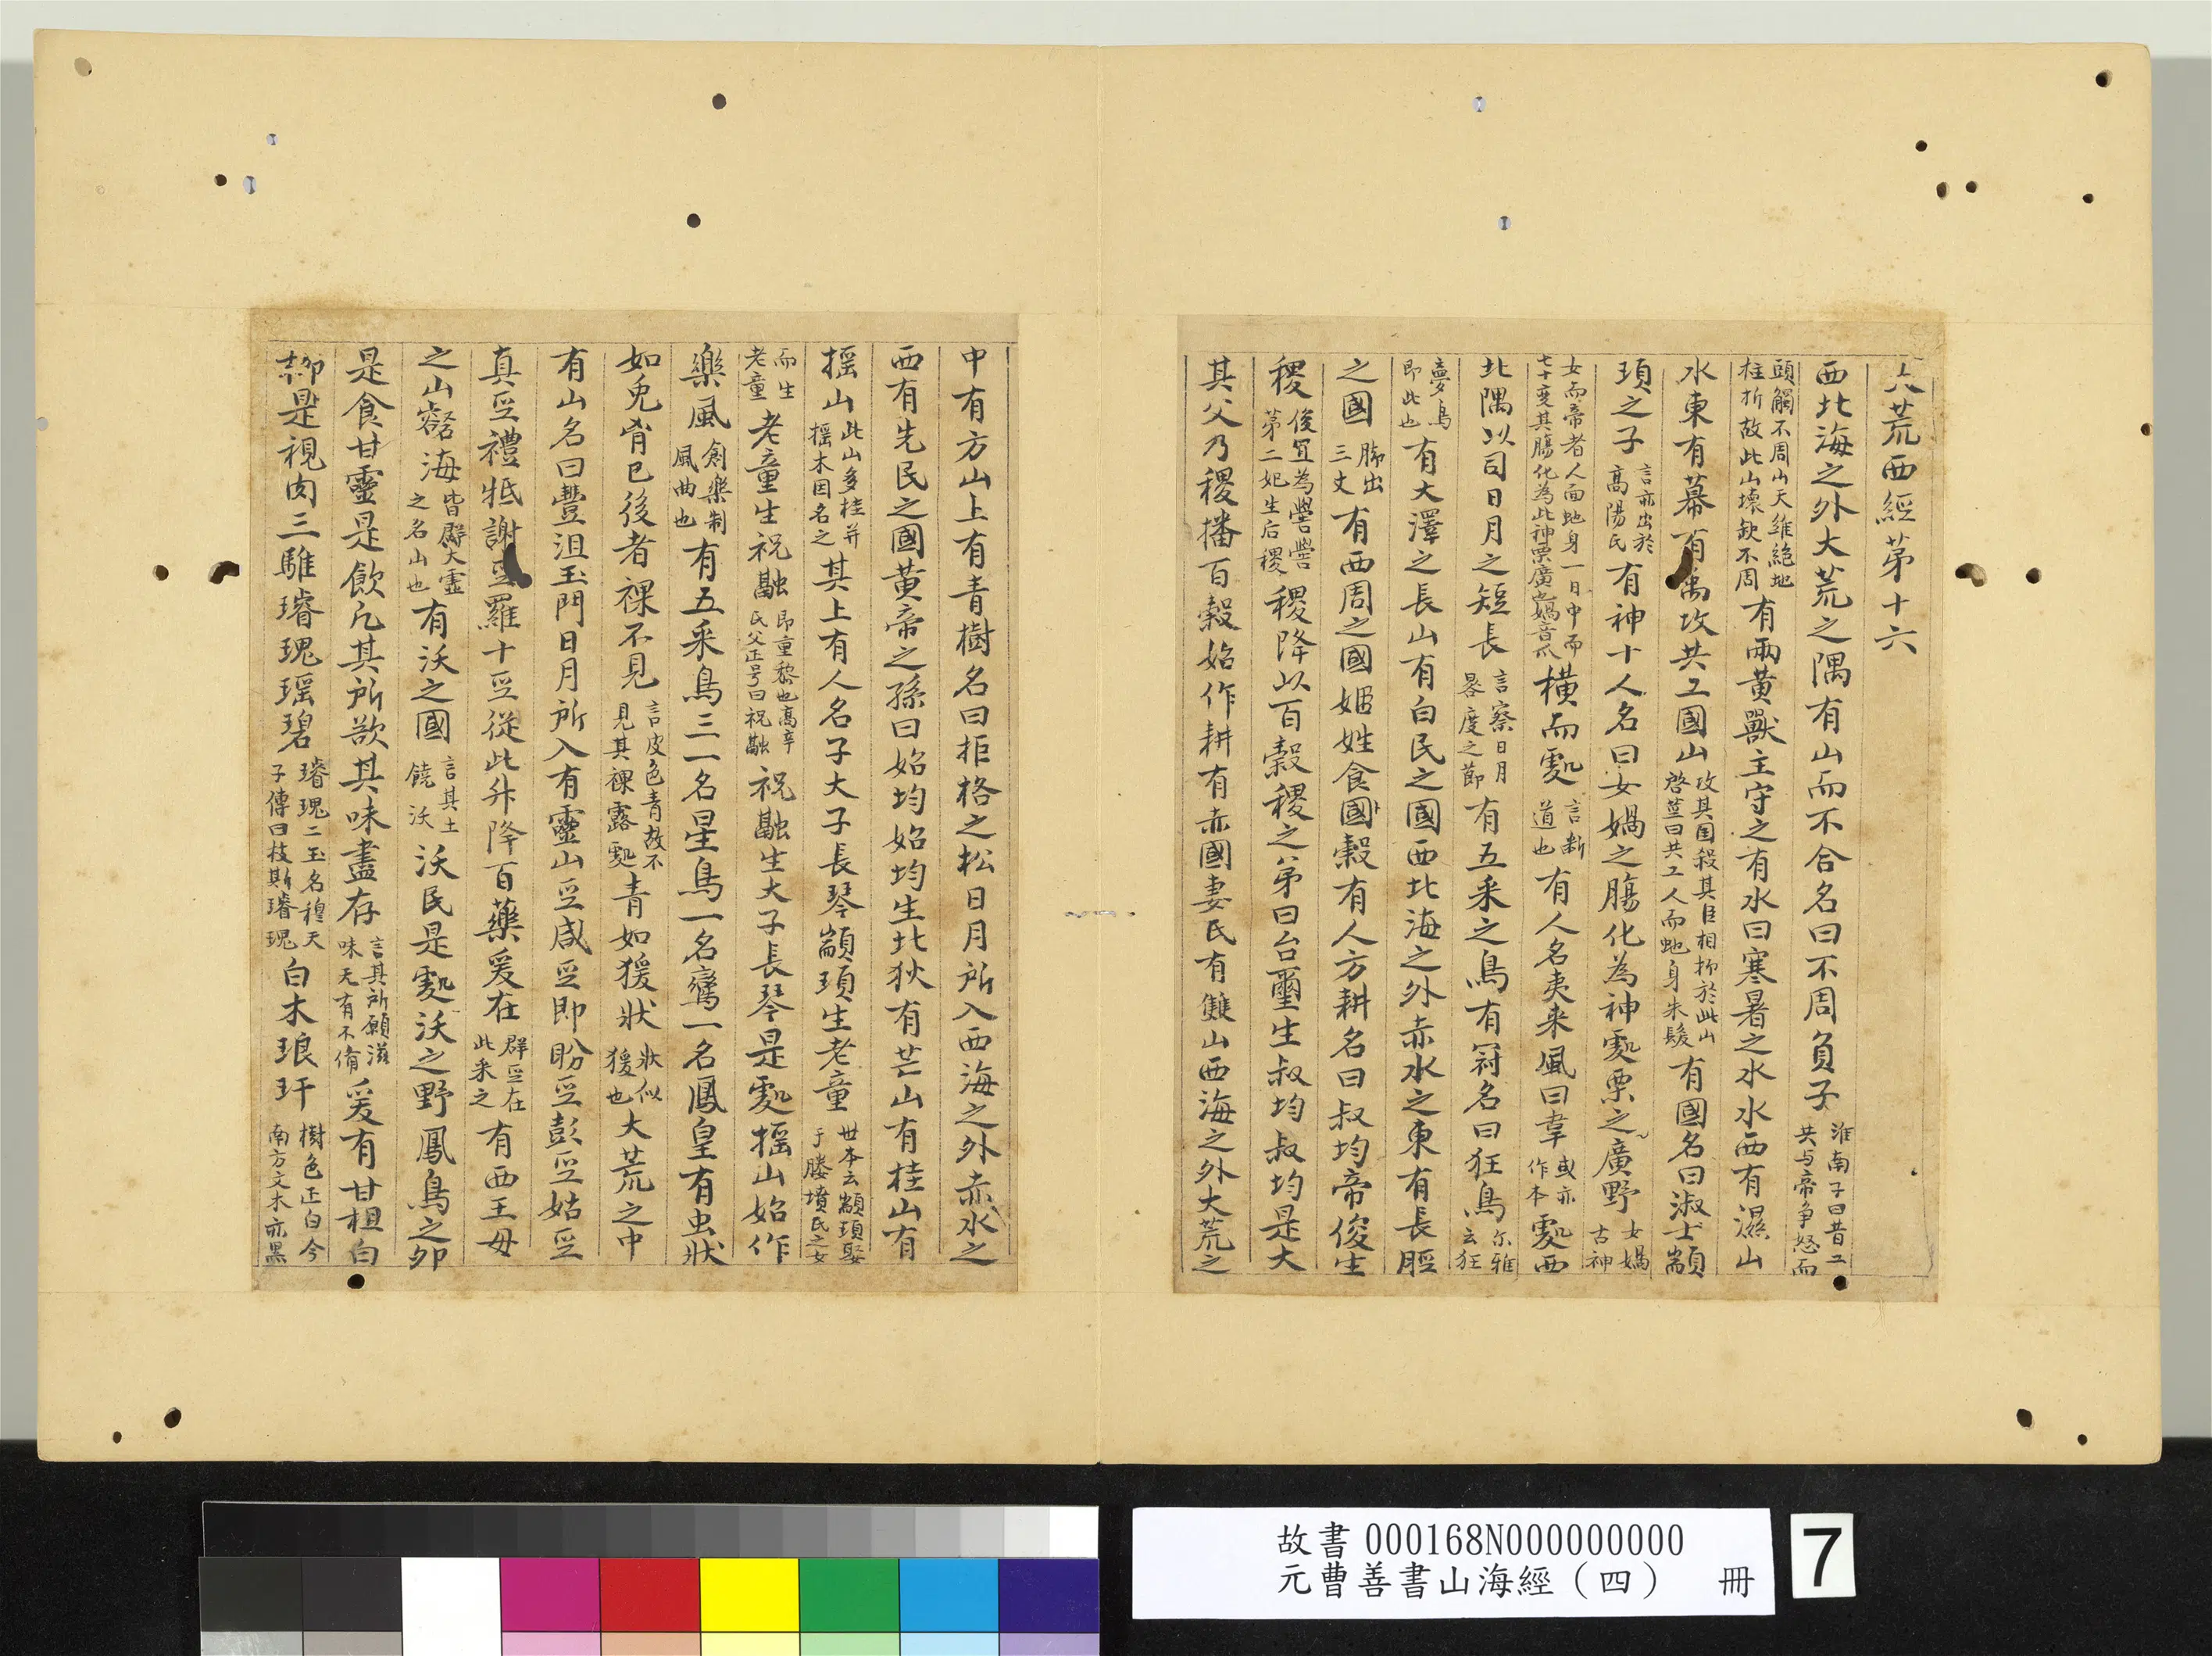 大荒西經苐十六
西北海之外大荒之隅有山而不合名曰不周負子淮南子曰昔工共与帝争怒而
頭觸不周山天維絶地柱折故此山壊缺不周有兩黄獸主守之有水曰寒暑之水水西有濕山
水東有幕有禹攻共工國山攻其国殺其臣相抑於此山啓莖曰共工人而虵身朱髮有國名曰淑士顓
頊之子言亦出於高陽氏有神十人名曰女媧之膓化為神䖏栗之廣野女媧古神
女而帝者人面虵身一日中而七十变其膓化為此神栗廣之媧音瓜横而䖏言断道也有人名夷来風曰韋或亦作本䖏西
北隅以司日月之短長言察日月晷度之節有五采之鳥有冠名曰狂鳥尔雅云狂
夢鳥即此也有大澤之長山有白民之國西北海之外赤水之東有長脛
之國脚出三丈有西周之國姬姓食國穀有人方耕名曰叔均帝俊生
稷後宜為嚳嚳苐二妃生后稷稷降以百穀稷之弟曰台璽生叔均叔均是大
其父乃稷播百穀始作耕有赤國妻氏有雙山西海之外大荒之
中有方山上有青樹名曰拒格之松日月所入西海之外赤水之
西有先民之國黄帝之孫曰始均始均生北狄有芒山有桂山有
揺山此山多桂并揺木因名之其上有人名子大子長琴顓頊生老童世本云顓頊娶于縢墳氏之女
而生老童老童生祝融即重黎也髙辛氏父正号曰祝融祝融生大子長琴是䖏揺山始作
樂風創樂制風曲也有五采鳥三一名星鳥一名鸞一名鳳皇有虫狀
如兔胷已後者裸不見言皮色青故不見其裸露䖏青如猨狀狀似猨也大荒之中
有山名曰豐沮玉門日月所入有靈山巫咸巫即盼巫彭巫姑巫
真巫禮抵謝巫羅十巫從此升降百藥爰在群巫在此采之有西王母
之山壑海皆羣大靈之名山也有沃之國言其土饒沃沃民是䖏沃之野鳳鳥之卵
是食甘靈是飲凢其所欲其味盡存言其所願滋味无有不俻爰有甘柤白
柳是視肉三騅璿瑰瑶碧璿瑰二玉名穆天子傳曰枝斯璿瑰白木琅玕樹色正白今南方文木亦黑
故書000168N000000000
元曹善書山海經（四） 冊
7